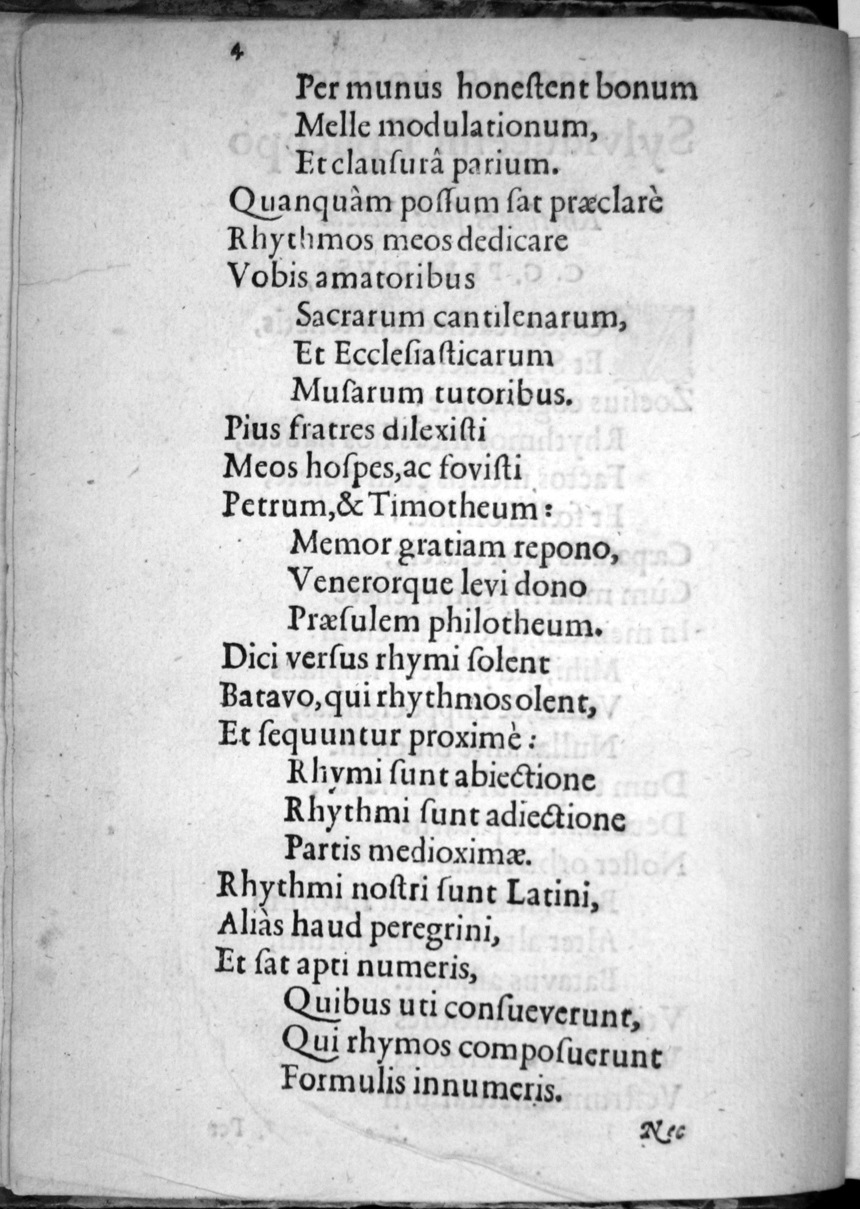 4
Per munus honeſtent bonum
Melle modulationum,
Et clauſurâ parium.
Quanquàm poſſum ſat præclarè
Rhythmos meos dedicare
Vobis amatoribus
Sacrarum cantilenarum,
Et Eccleſiaſticarum
Muſarum tutoribus.
Pius fratres dilexiſti
Meos hoſpes, ac foviſti
Petrum, & Timotheum:
Memor gratiam repono,
Venerorque levi dono
Præſulem philotheum.
Dici verſus rhymi ſolent
Batavo, qui rhythmos olent,
Et ſequuntur proximè:
Rhymi ſunt abiectione
Rhythmi ſunt adiectione
Partis medioximæ.
Rhythmi noſtri ſunt Latini,
Aliàs haud peregrini,
Et ſat apti numeris,
Quibus uti conſueverunt,
Qui rhymos compoſuerunt
Formulis innumeris.
Nec